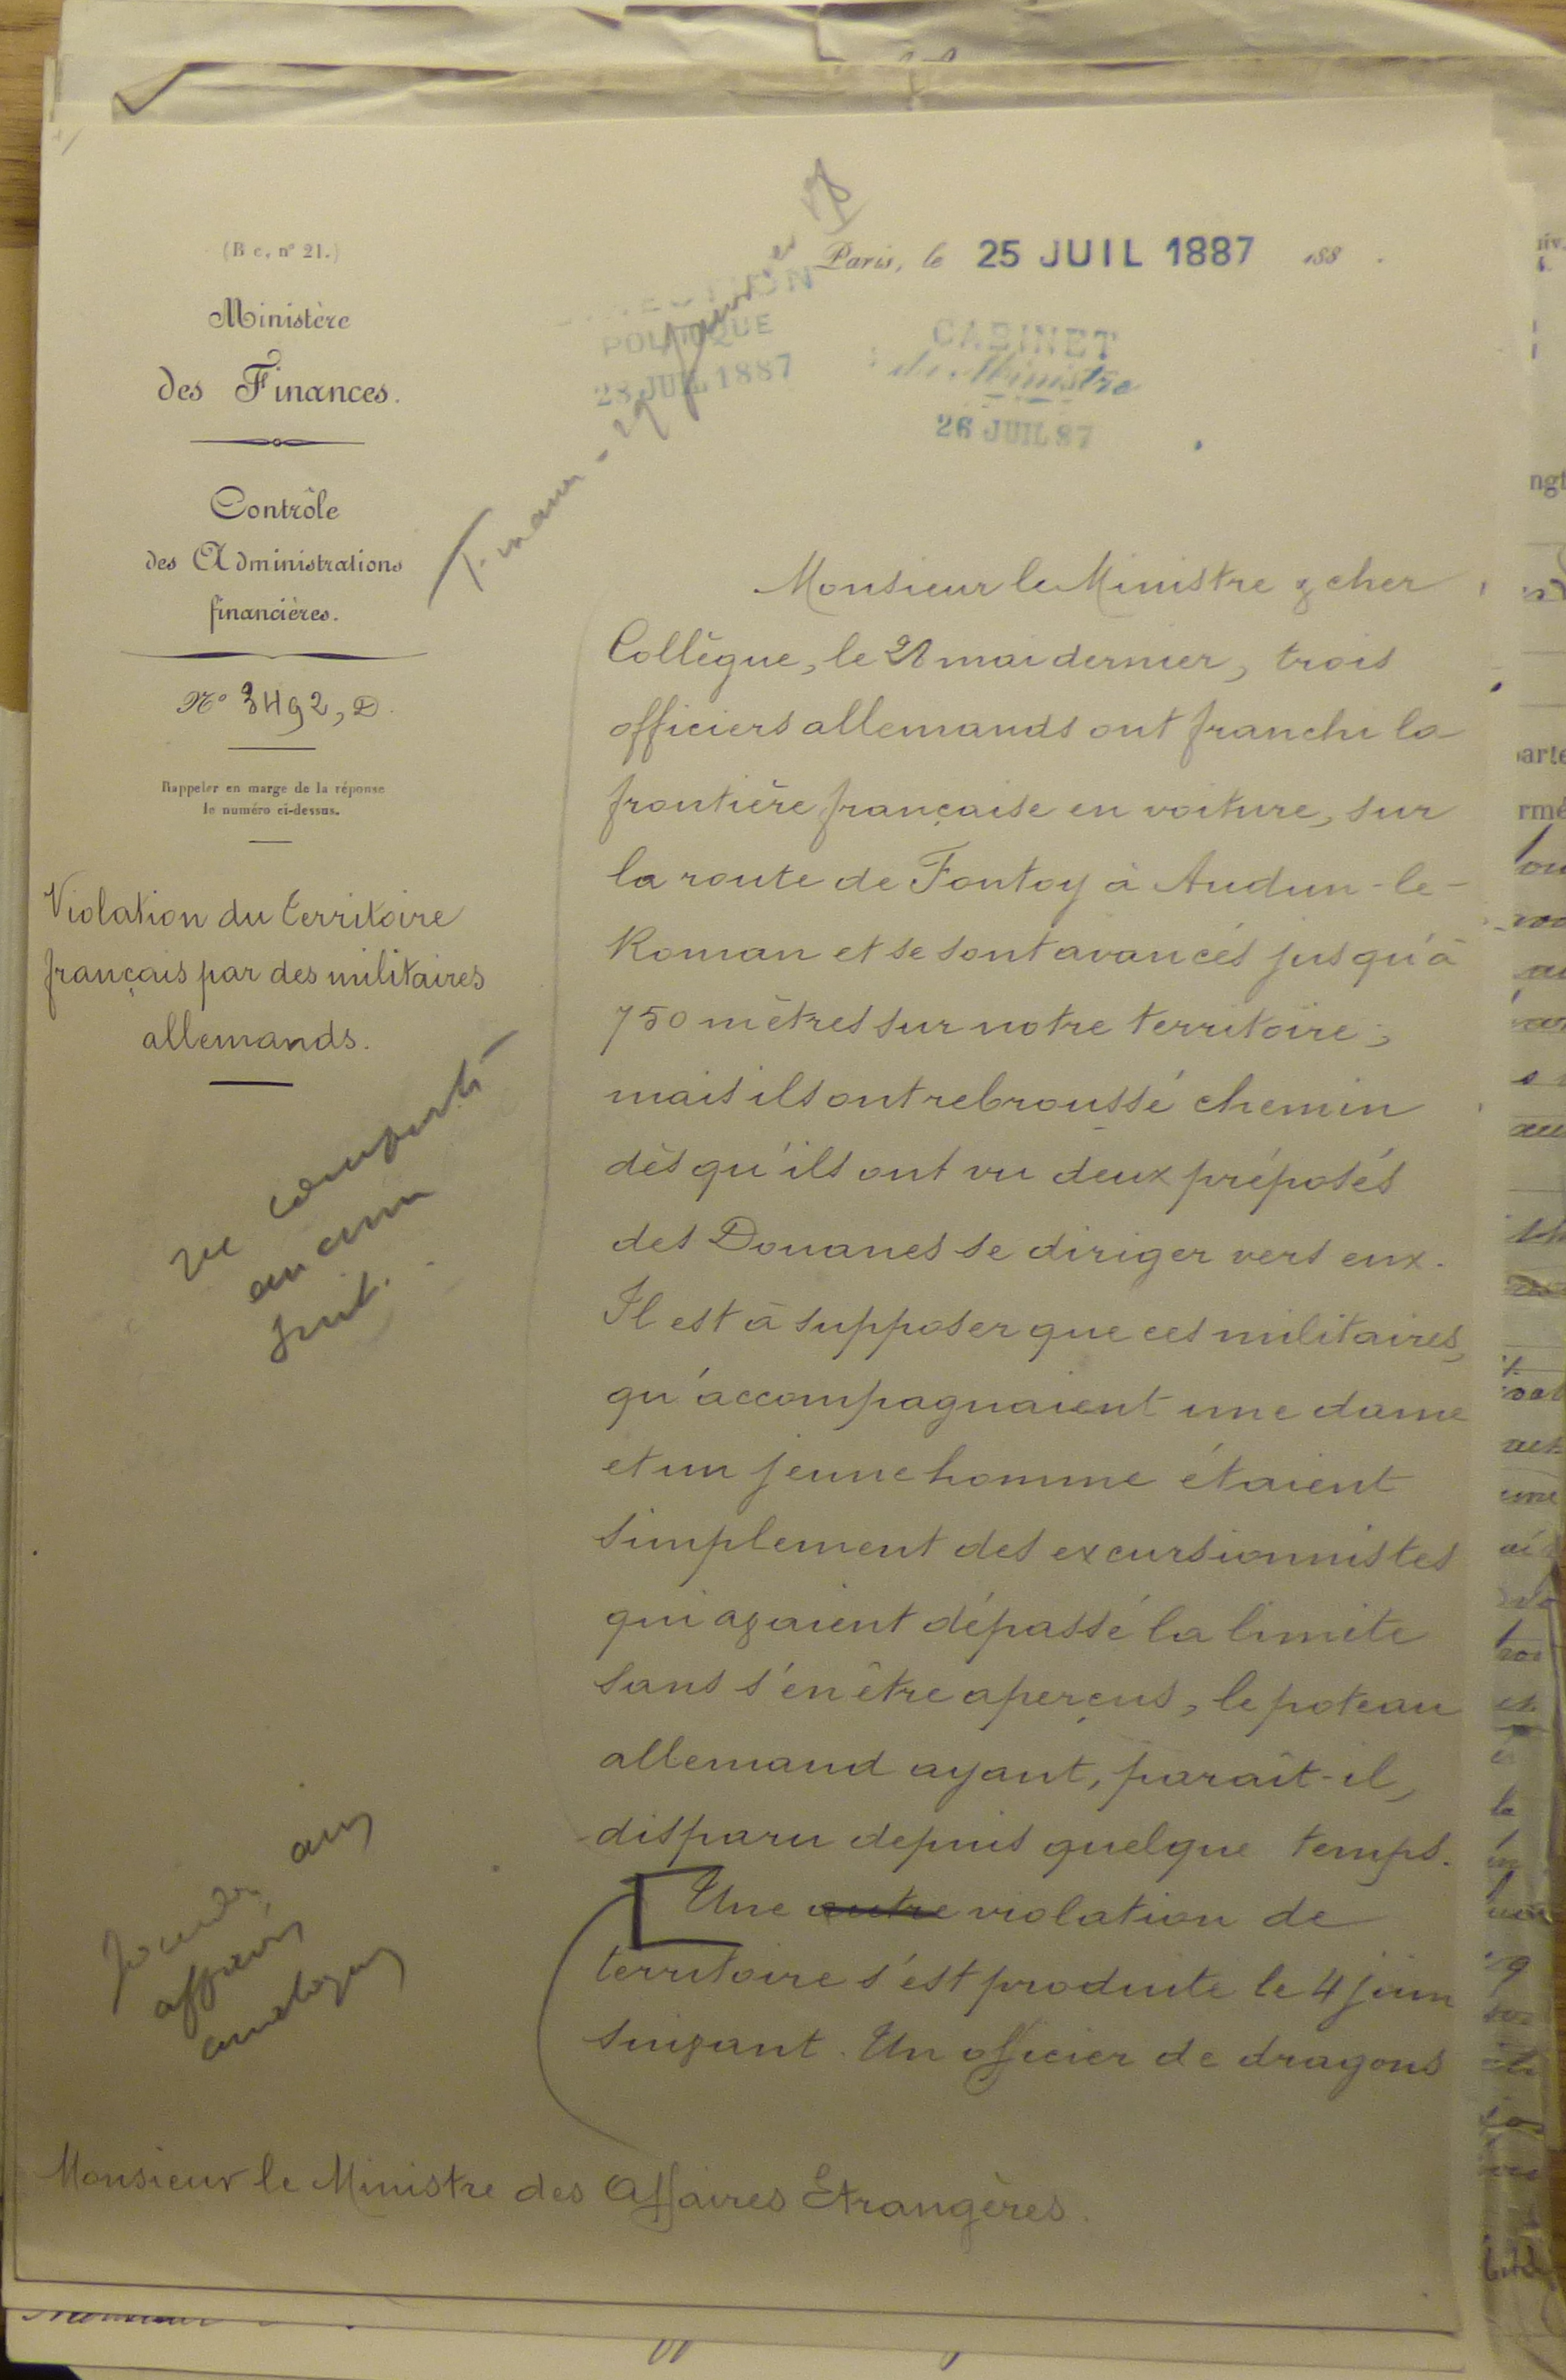 (B c, n° 21.)
Ministère
des Finances.
Contrôle
des Administrations
financières.
N° 3492, D.
Rappeler en marge de la réponse
le numéro ci-dessus.
Violation du territoire
français par des militaires
allemands.
ne comporte
aucune
suite.
Joindre aux
affaires
analogues
Paris, le 25 JUIL 1887 188 .
POLITIQUE
28 JUIL 1887
CABINET
du Ministre
26 JUIL 87
Monsieur le Ministre & cher
Collègue, le 28 mai dernier, trois
officiers allemands ont franchi la
frontière française en voiture, sur
la route de Fontoy à Audun-le-
Roman et se sont avancés jusqu'à
750 mètres sur notre territoire;
mais ils ont rebroussé chemin
dès qu'ils ont vu deux préposés
des Douanes se diriger vers eux.
Il est à supposer que ces militaires,
qu'accompagnaient une dame
et un jeune homme étaient
simplement des excursionnistes
qui avaient dépassé la limite
sans s'en être aperçus, le poteau
allemand ayant, paraît-il,
disparu depuis quelque temps.
Une autre violation de
territoire s'est produite le 4 juin
suivant. Un officier de dragons
Monsieur le Ministre des Affaires Etrangères.